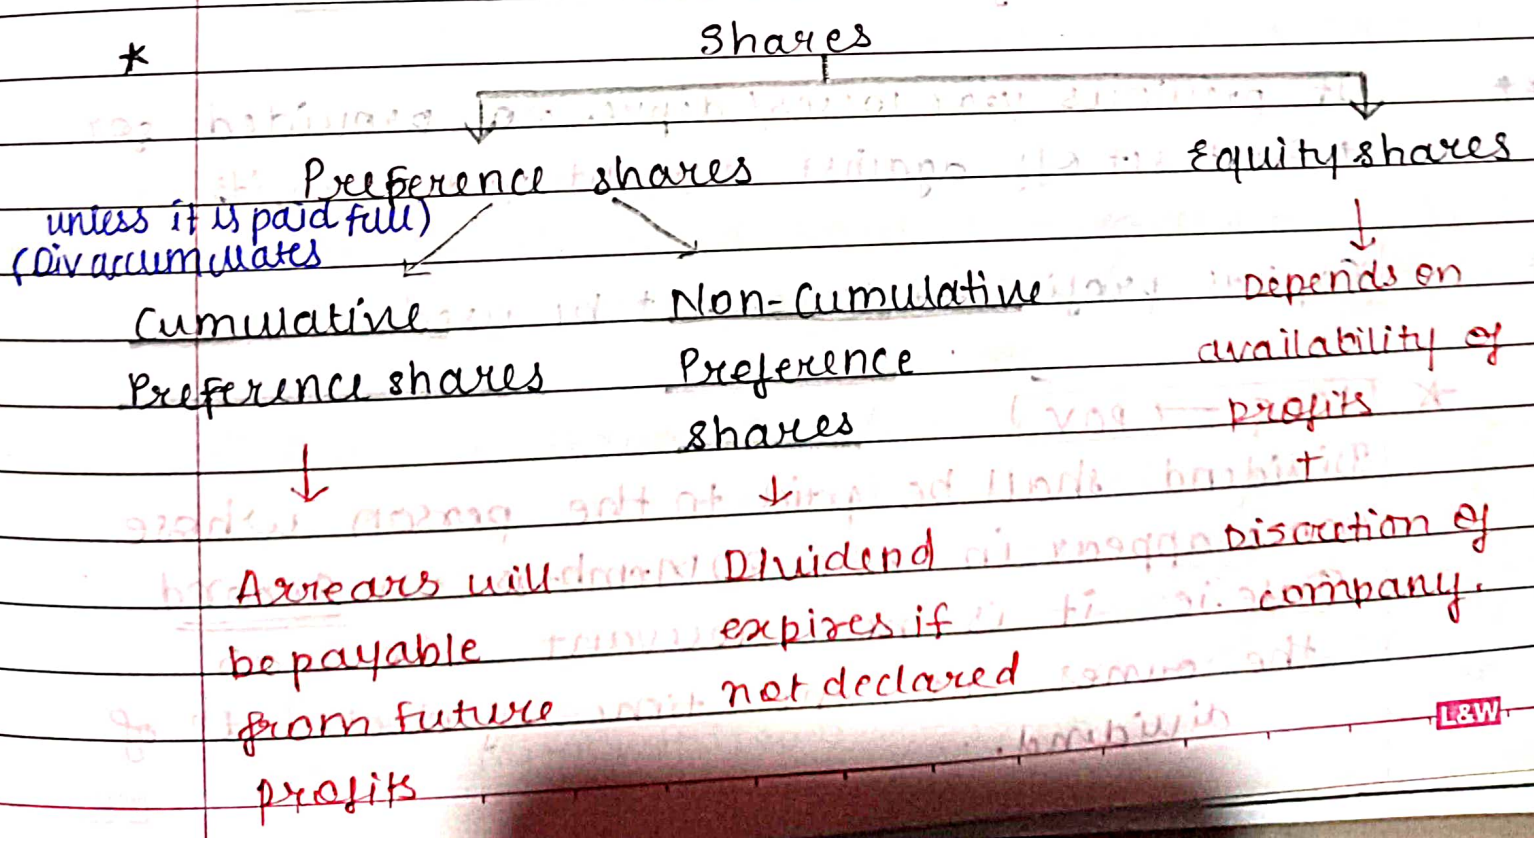 *
Shares
Preference shares
Equity shares
unless it is paid full)
(Div accumulates
Cumulative
Preference shares
Non-Cumulative
Preference
shares
Depends on
availability of
profits
+
Discretion of
company.
Arrears will
be payable
from future
profits
Dividend
expires if
not declared
L&W